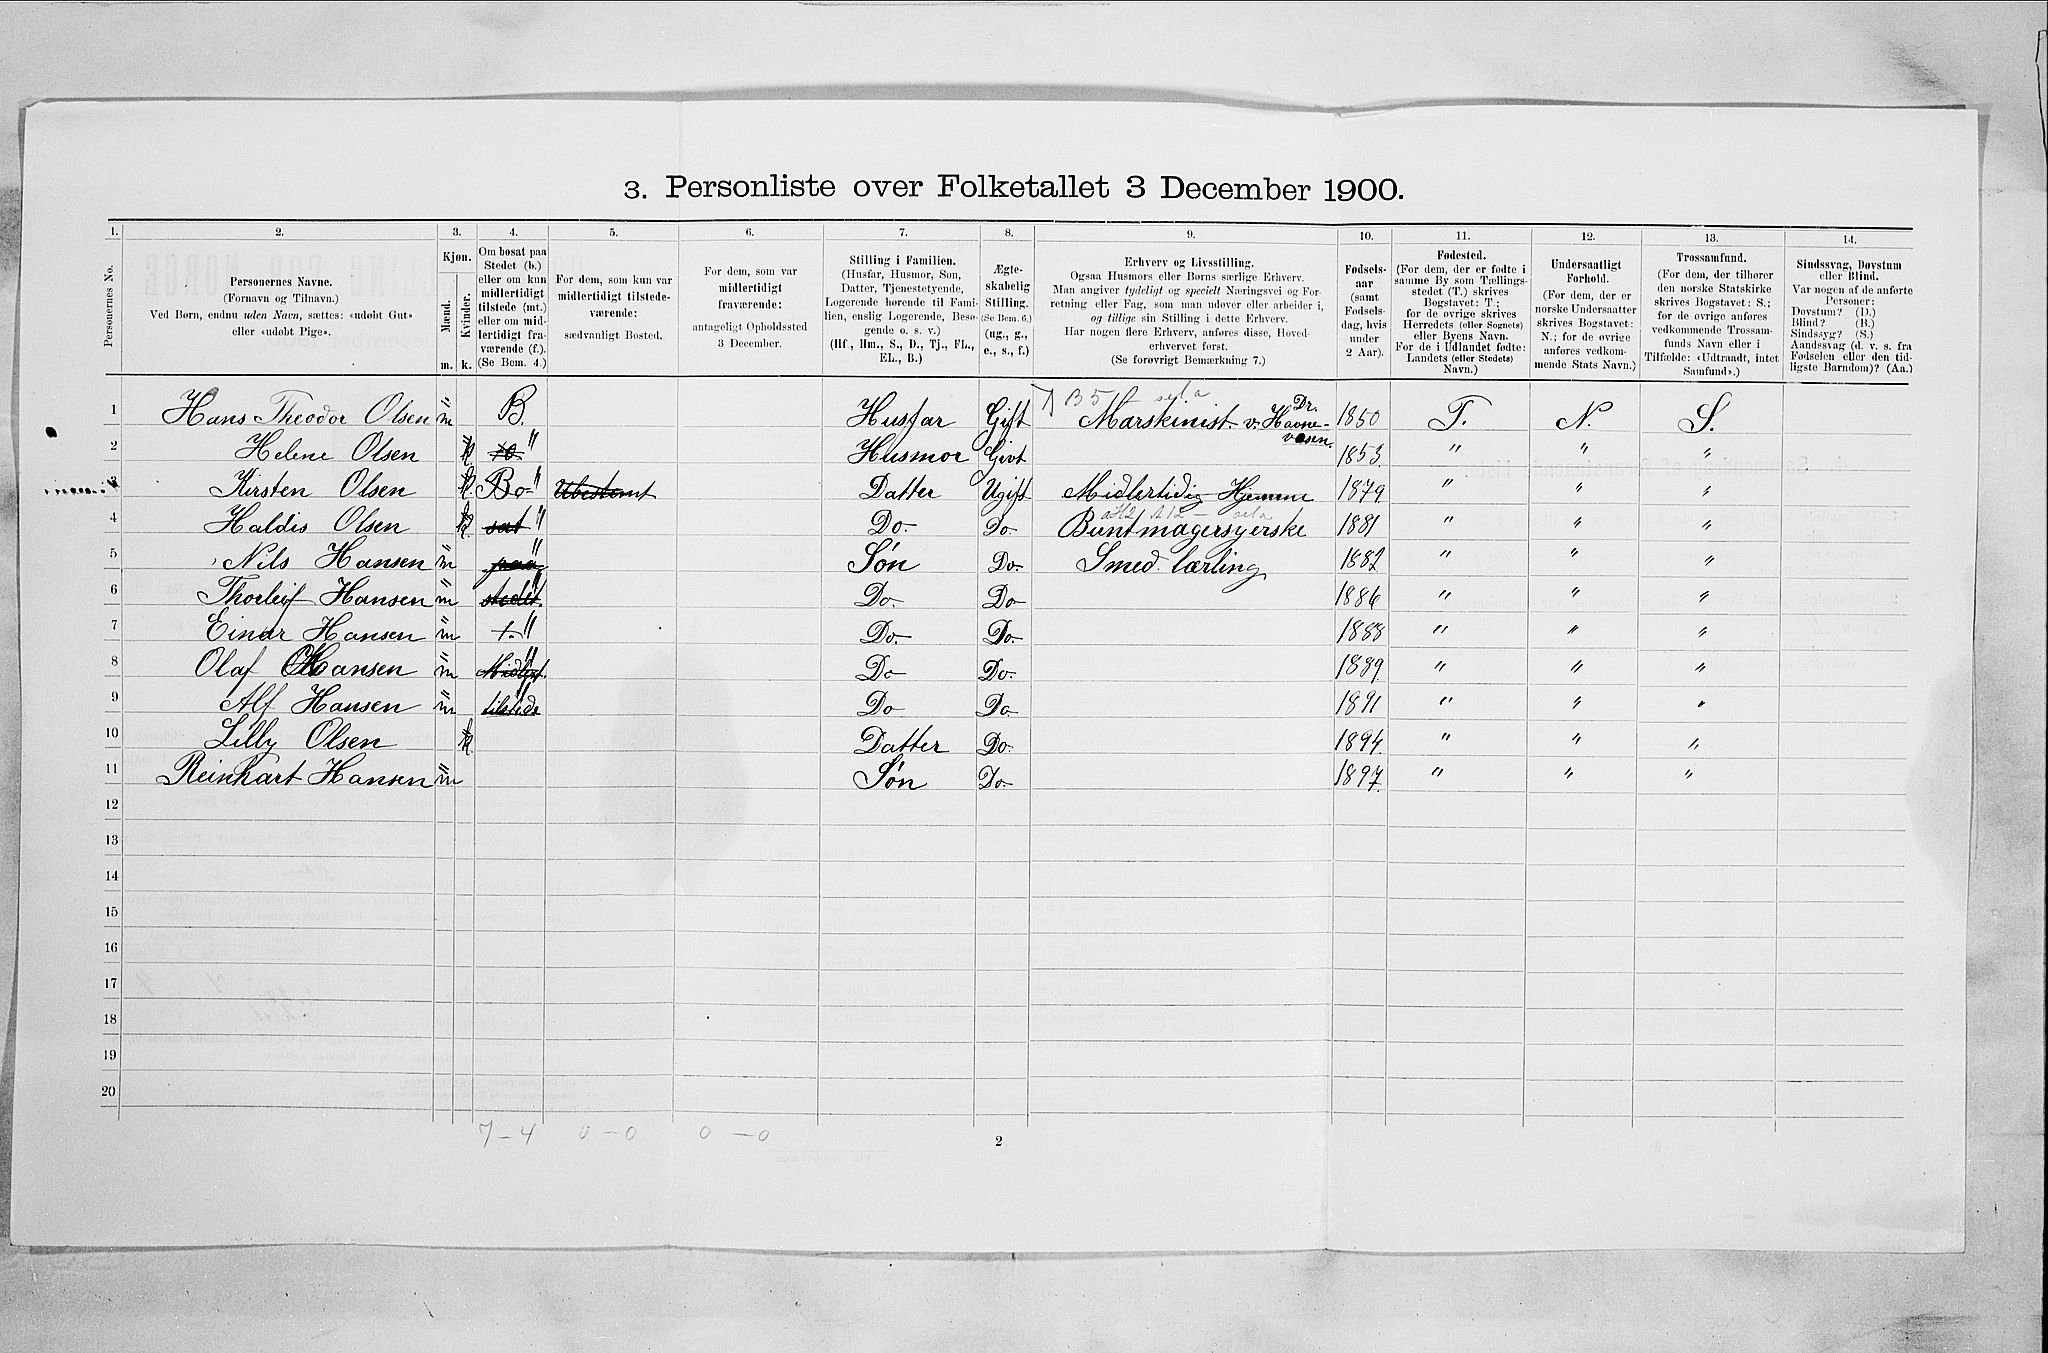 3. Personliste over Folketallet 3 December 1900.
1. 2. 3. 4. 5. 6. 7. 8. 9. 10. 11. 12. 13. 14.
Personernes No.
Personernes Navne.
(Fornavn og Tilnavn.)
Ved Børn, endnu uden Navn, sættes: «udøbt Gut»
eller «udøbt Pige».
Kjøn.
Mænd.
Kvinder.
m. k.
Om bosat paa
Stedet (b.)
eller om kun
midlertidigt
tilstede (mt.)
eller om mid-
lertidigt fra-
værende (f.).
(Se Bem. 4.)
For dem, som kun var
midlertidigt tilstede-
værende:
sædvanligt Bosted.
For dem, som var
midlertidigt
fraværende:
antageligt Opholdssted
3 December.
Stilling i Familien.
(Husfar, Husmor, Søn,
Datter, Tjenestetyende,
Logerende hørende til Fami-
lien, enslig Logerende, Besø-
gende o. s. v.)
(Hf., Hm., S., D., Tj., FL.,
EL., B.)
Ægte-
skabelig
Stilling.
(Se Bem. 6.)
(ug., g.,
e., s., f.)
Erhverv og Livsstilling.
Ogsaa Husmors eller Børns særlige Erhverv.
Man angiver tydeligt og specielt Næringsvei og For-
retning eller Fag, som man udøver eller arbeider i,
og tillige sin Stilling i dette Erhverv.
Har nogen flere Erhverv, anføres disse, Hoved-
erhvervet først.
(Se forøvrigt Bemærkning 7.)
Fødsels-
aar
(samt
Fødsels-
dag, hvis
under
2 Aar).
Fødested.
(For dem, der er fødte i
samme By som Tællings-
stedet (T.) skrives
Bogstavet: T.;
for de øvrige skrives
Herredets (eller Sognets)
eller Byens Navn.
For de i Udlandet fødte:
Landets (eller Stedets)
Navn.)
Undersaatligt
Forhold.
(For dem, der er
norske Undersaatter
skrives Bogstavet:
N.; for de øvrige
anføres vedkom-
mende Stats Navn.)
Trossamfund.
(For dem, der tilhører
den norske Statskirke
skrives Bogstavet: S.;
for de øvrige anføres
vedkommende Trossam-
funds Navn eller i
Tilfælde: «Udtraadt, intet
Samfund».)
Sindssvag, Døvstum
eller Blind.
Var nogen af de anførte
Personer:
Døvstum? (D.)
Blind? (B.)
Sindssyg? (S.)
Aandssvag (d. v. s. fra
Fødselen eller den tid-
ligste Barndom)? (Aa.)
1 Hans Theodor Olsen m B. Husfar Gift Marskinist v. Dr. Havne-vesen. 1850 T. N. S.
2 Helene Olsen k " Husmor Givt 1853 " " "
3 Kirsten Olsen k Bo " Ubestemt Datter Ugift Midlertidig Hjemme 1879 " " "
4 Haldis Olsen k sat " Do. Do. Buntmagersyerske 1881 " " "
5 Nils Hansen m paa " Søn Do. Smed lærling 1882 " " "
6 Thorleif Hansen m stedet. Do. Do 1886 " " "
7 Einar Hansen m " Do. Do. 1888 " " "
8 Olaf Hansen m Do Do. 1889 " " "
9 Alf Hansen m tilstede Do Do. 1891 " " "
10 Lilly Olsen k Datter Do. 1894 " " "
11 Reinhart Hansen m Søn Do. 1897. " " "
12
13
14
15
16
17
18
19
20
7 - 4 0 - 0 0 - 0
2